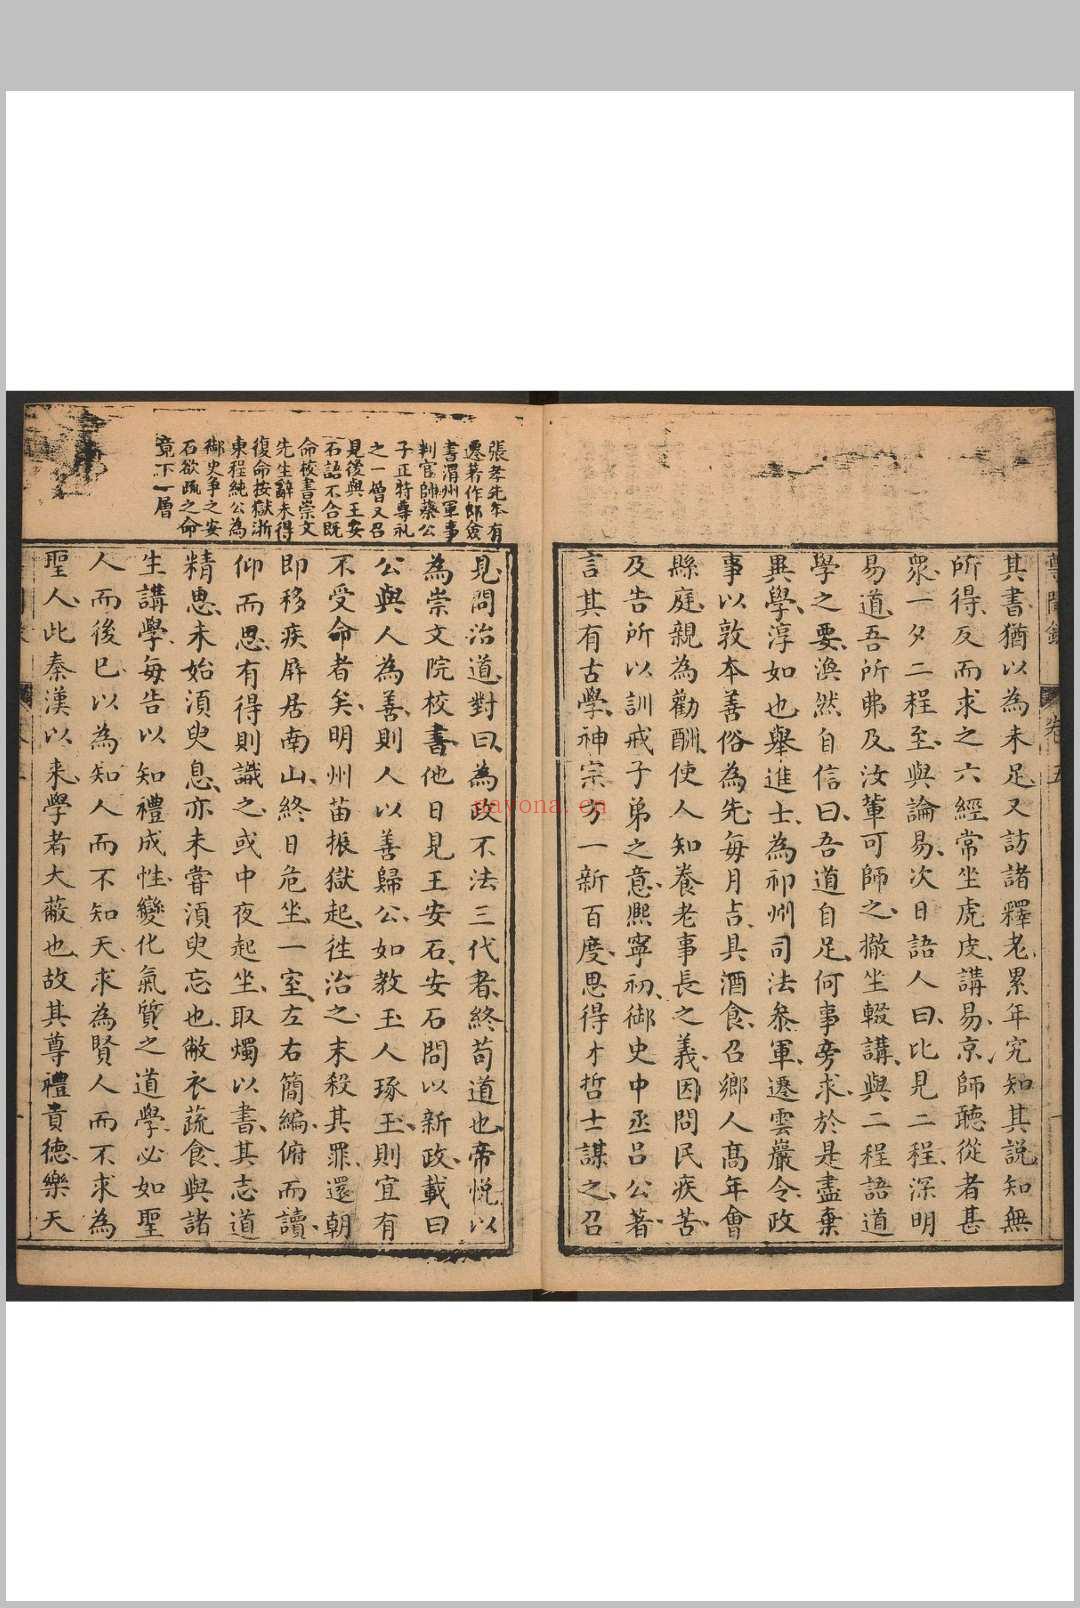 卷五
其書猶以為未足又訪諸釋老累年究知其說知無
所得反而求之六經常坐虎皮講易京師聽從者甚
衆一夕二程至與論易次日語人曰比見二程深明
易道吾所弗及汝軰可師之撤坐輟講與二程語道
學之要渙然自信曰吾道自足何事旁求於是盡棄
異學淳如也舉進士為祁州司法叅軍遷雲巖令政
事以敦本善俗為先每月吉具酒食召鄉人髙年會
縣庭親為勸酬使人知養老事長之義因問民疾苦
及告所以訓戒子弟之意熙寧初御史中丞吕公著
言其有古學神宗方一新百度思得才哲士謀之召
張孝先本有
遷著作郎僉
書渭州軍事
判官帥蔡公
子正特尊礼
之一僧又召
見後與王安
石語不合既
命校書崇文
先生辭未得
復命按獄浙
東程純公為
御史爭之安
石欲疏之命
竟不一層
見問治道對曰為政不法三代者終苟道也帝悅以
為崇文院校書他日見王安石安石問以新政載曰
公與人為善則人以善歸公如教玉人琢玉則宜有
不受命者矣明州苗振獄起徃治之末殺其罪還朝
即移疾屏居南山終日危坐一室左右簡編俯而讀
仰而思有得則識之或中夜起坐取燭以書其志道
精思未始湏臾息亦未嘗湏臾忘也敝衣蔬食與諸
生講學每告以知禮成性變化氣質之道學必如聖
人而後已以為知人而不知天求為賢人而不求為
聖人此秦漢以来學者大蔽也故其尊禮貴德樂天